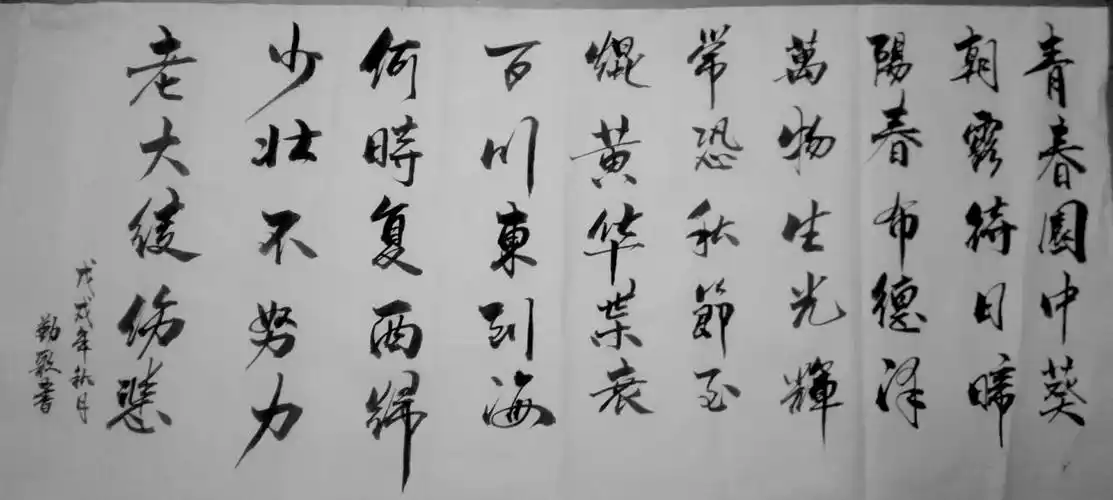 青春園中葵
朝露待日晞
陽春布德泽
萬物生光輝
常恐秋節至
焜黄华葉衰
百川東到海
何時复西歸
少壮不努力
老大伤悲
戊戌年秋月
勤書